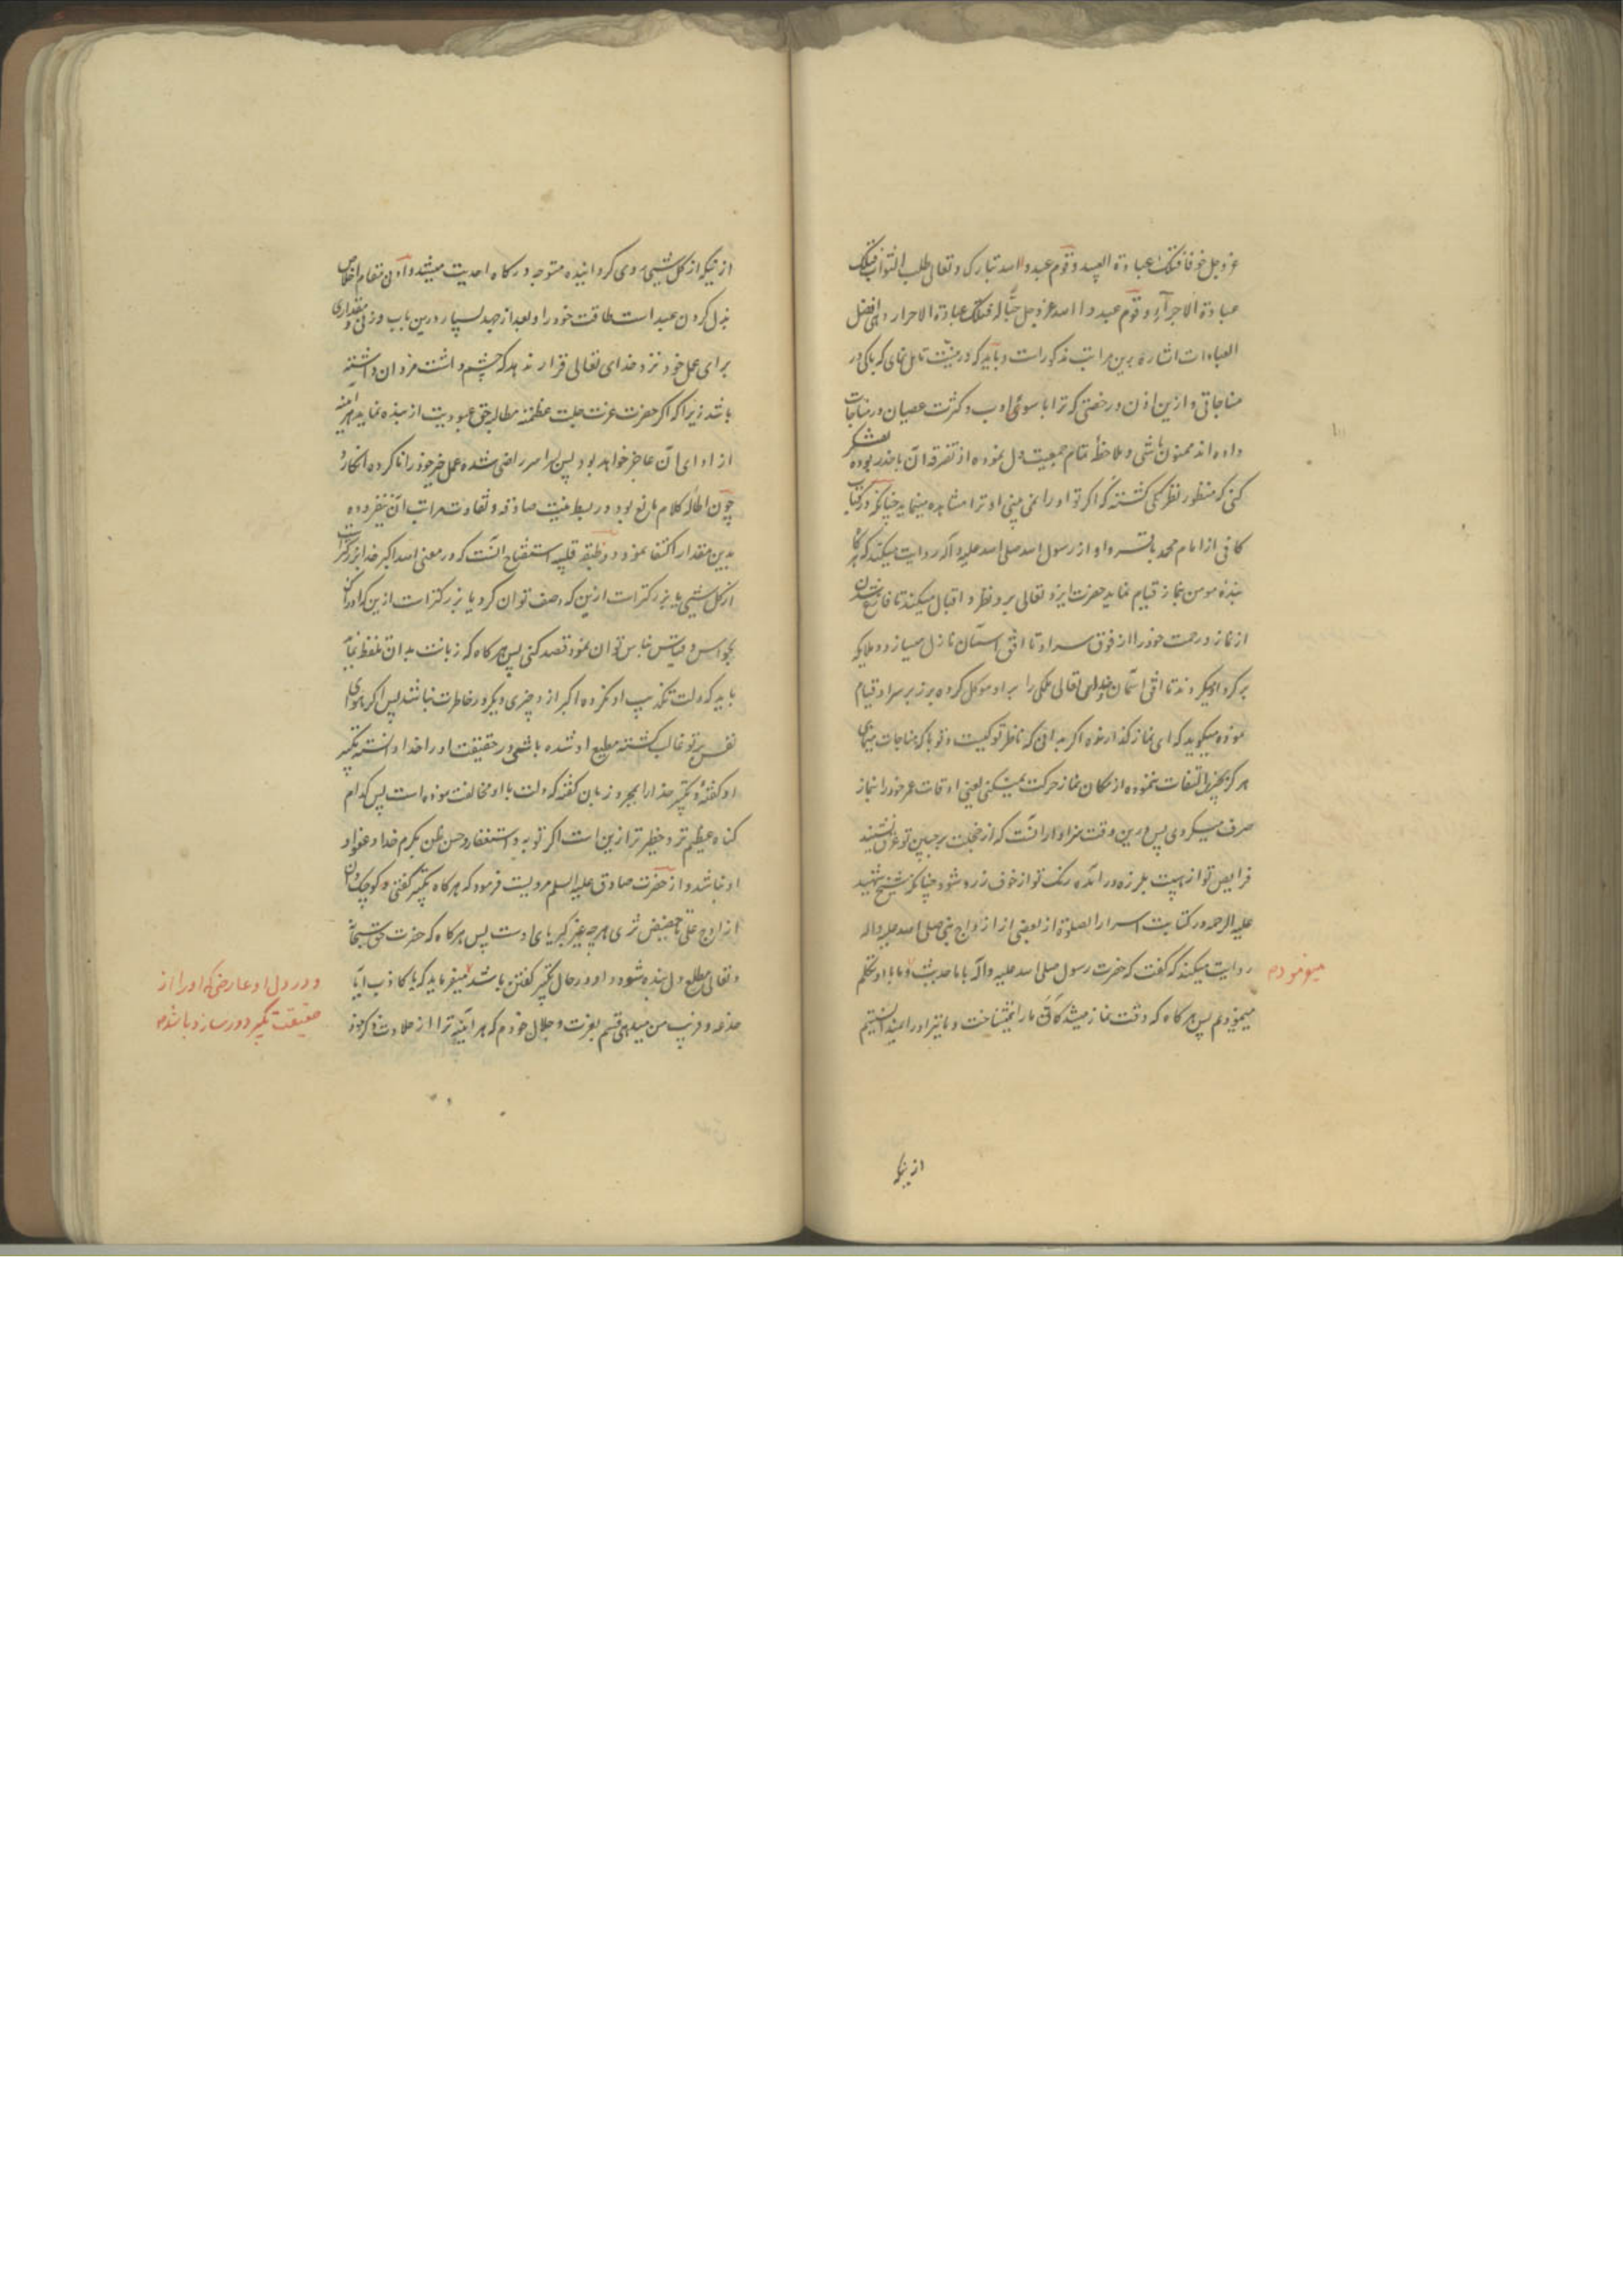 عز و جل خوفا فتلک عبادة العبید و قوم عبدوا الله تبارک و تعالی طلب الثواب فتلک
عبادة الاجراء و قوم عبدوا الله عز و جل حبا له فتلک عبادة الاحرار و هی افضل
العبادات اشاره برین مراتب مذکورات و باید که در نیت تامل نمای که با کی در
مناجاتی و ازین اذن و رخصتی که ترا با سوئ ادب و کثرت عصیان در مناجات
داده اند ممنون باشی و ملاحظهٔ تمام جمعیت دل نموده از تفرقه آن با حذر بوده تفکر
کنی که منظور نظر کی کشته که اکر تو او را نمی بینی او ترا مشاهده مینماید چنانکه در کتاب
کافی از امام محمد باقر و او از رسول الله صلی الله علیه و آله روایت میکند که هر کاه
بندهٔ مومن بنماز قیام نماید حضرت ایزد تعالی برو نظر و اقبال میکند تا فارغ شدن
از نماز و رحمت خود را از فوق سر او تا افق آسمان نازل میسازد و ملایکه
بر کرد او میکردند تا افق آسمان و خدای تعالی ملکی را بر او موکل کرده بر زبر سر او قیام
نموده میکوید که ای نماز کذارنده اکر بدانی که ناظر تو کیست و تو با که مناجات مینمای
هرکز بچیزی التفات ننموده از مکان نماز حرکت نمیکنی یعنی اوقات عمر خود را بنماز
صرف میکردی پس درین وقت سزاوار آنست که از خجلت بر جبین تو عرق نشیند
فرایص تو از هیبت بلرزه در آمده رنک تو از خوف زرد شود چنانکه شیخ شهید
علیه الرحمه در کتابت اسرار الصلوة از بعضی از ازواج نبی صلی الله علیه و اله
روایت میکند که کفت که حضرت رسول صلی الله علیه و آله با ما حدیث و ما با او تکلم
مینمودم
مینمودیم پس هر کاه که وقت نماز میشد کانّه ما را نمیشناخت و ما نیز او را نمیدانستیم
از ینکه
از ینکه از کل شیئی روی کردانیده متوجه درکاه احدیت میشد و ادنی مقام اخلاص
بذل کردن عبد است طاقت خود را و بعد از جهد بسیار درین باب وزنی و مقداری
برای عمل خود نزد خدای تعالی قرار ندهد که چشم داشت مزد آن داشته
باشد زیرا که اکر حضرت عزت جلت عظمته مطالبه حق عبودیت از بنده نماید هر آینه
از ادای آن عاجز خواهد بود پس سر بسر راضی شده عمل خیر خود را ناکرده انکارد
چون اطالهٔ کلام مانع بود در بسط نیت صادقه و تفاوت مراتب آن
بدین مقدار اکتفا نمود و وظیفه قلبیه استفتاح آنست که در معنی الله اکبر خدا بزرکتر است
از کل شیئی یا بزرکتر است ازین که وصف توان کرد یا بزرکتر است ازین که ادراک
بحواس و قیاس بناس توان نمود قصد کنی پس هر کاه که زبانت بدان تلفظ نماید
باید که دلت تکذیب او نکرده اکبر از و چیزی دیکر در خاطرت نباشد پس اکر هوای
نفس بر تو غالب کشته مطیع او شده باشی در حقیقت او را خدا دانسته تکبیر
او کفتهٔ و تکبیر خدا را بمجرد زبان کفته که دلت با او مخالفت نموده است پس کدام
کناه عظیم تر و خطیر تر ازین است اکر توبه و استغفار و حسن ظن بکرم خدا و عفو او
او نباشد و از حضرت صادق علیه السلم مرویست فرمود که هر کاه تکبیر کفتی کوچک دان
از اوج علی تا حضیض ثری هر چه غیر کبریای اوست پس هر کاه که حضرت حق سبحانه
و تعالی مطلع دل بنده شود و او در حال تکبیر کفتن باشد میفرماید که یا کاذب آیا
و در دل او عارضی که او را از
حقیقت تکبیر دور سازد باشد
خدعه و فریب من میدهی قسم بعزت و جلال خودم که هر آینه ترا از حلاوت ذکر خود